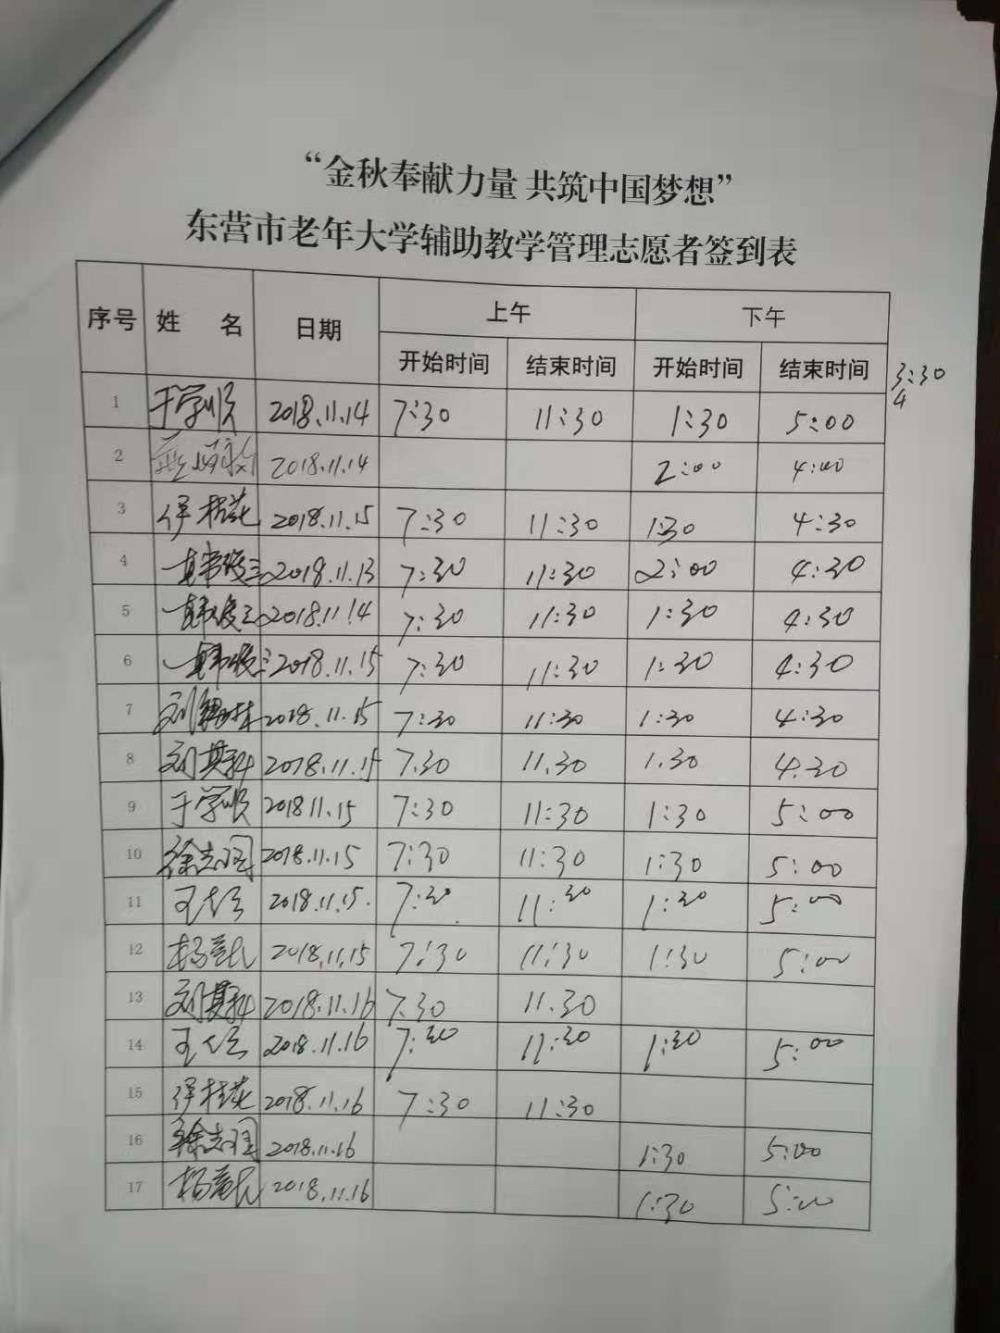 “金秋奉献力量 共筑中国梦想”
东营市老年大学辅助教学管理志愿者签到表
序号 姓 名 日期 上午 下午
开始时间 结束时间 开始时间 结束时间
3:30
4
1 于学顺 2018.11.14 7:30 11:30 1:30 5:00
2 2018.11.14 2:00 4:00
3 桂花 2018.11.15 7:30 11:30 1:30 4:30
4 2018.11.13 7:30 11:30 2:00 4:30
5 2018.11.14 7:30 11:30 1:30 4:30
6 2018.11.15 7:30 11:30 1:30 4:30
7 刘 2018.11.15 7:30 11:30 1:30 4:30
8 刘其科 2018.11.15 7.30 11.30 1.30 4.30
9 于学顺 2018 11.15 7:30 11:30 1:30 5:00
10 徐志 2018.11.15 7:30 11:30 1:30 5:00
11 王 2018.11.15. 7:30 11:30 1:30 5:00
12 杨 2018.11.15 7:30 11:30 1:30 5:00
13 刘其科 2018.11.16 7.30 11.30
14 王 2018.11.16 7:30 11:30 1:30 5:00
15 桂花 2018.11.16 7:30 11:30
16 徐志 2018.11.16 1:30 5:00
17 杨 2018.11.16 1:30 5:00